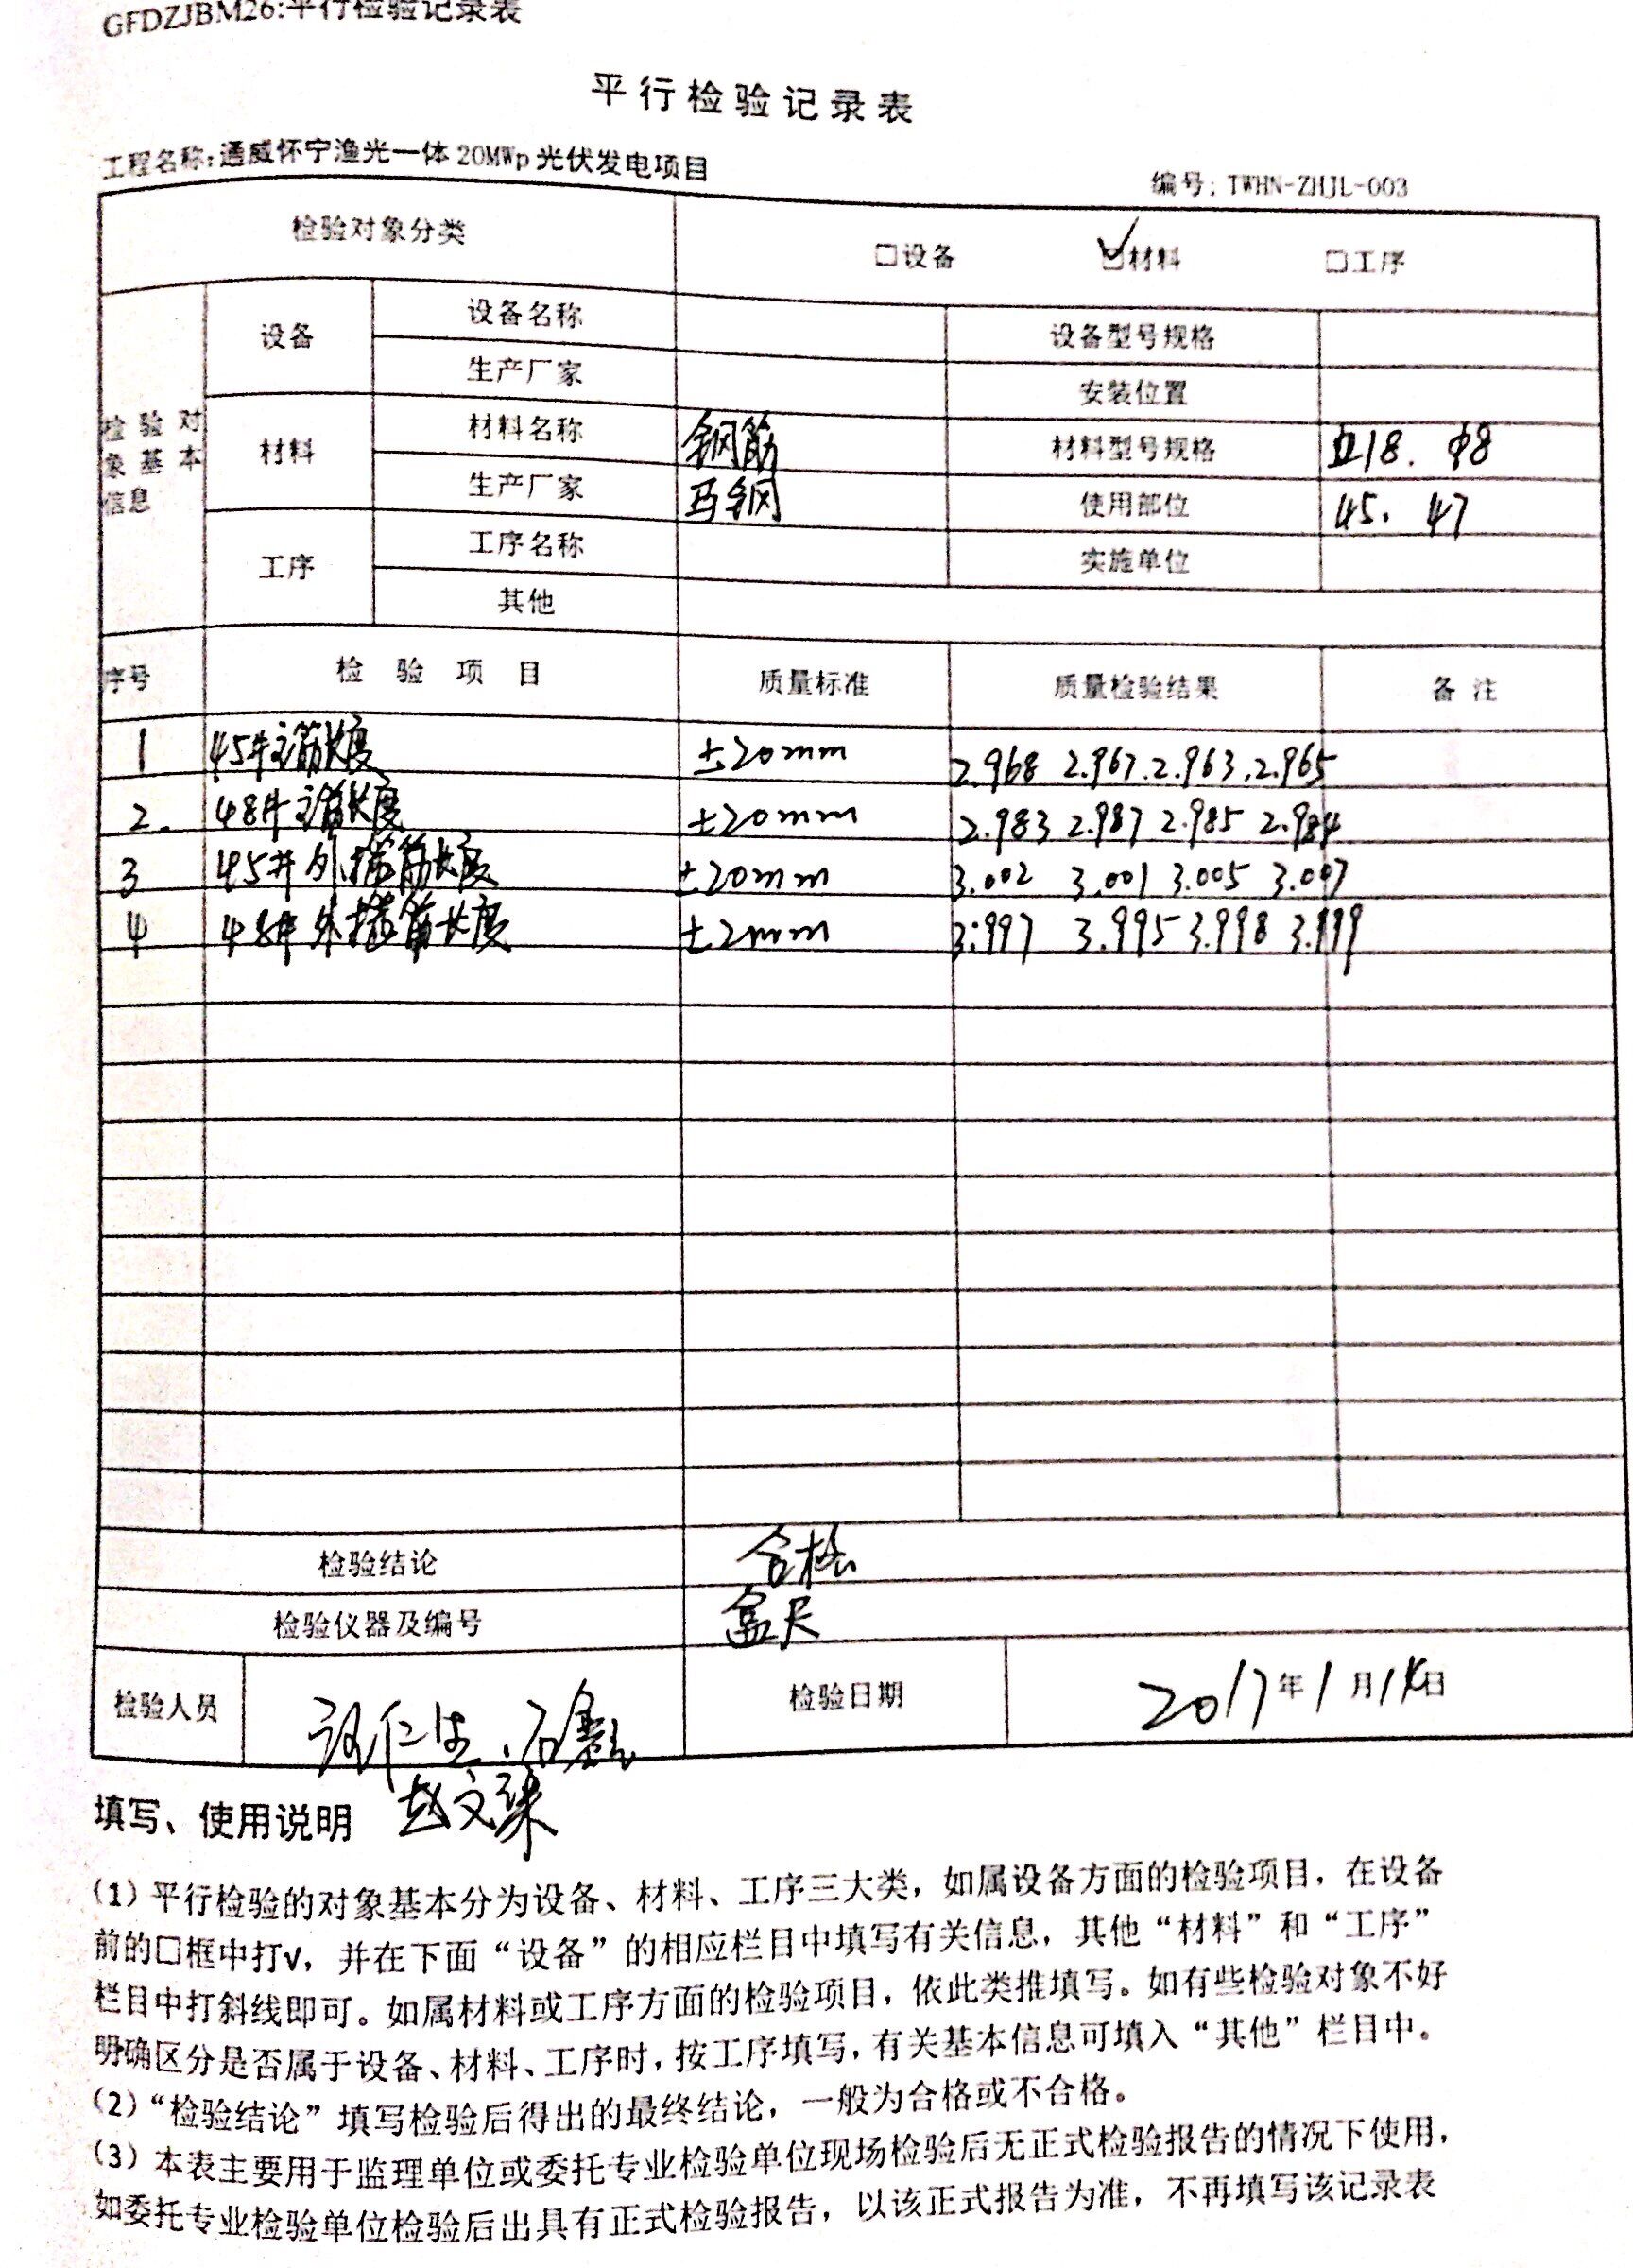 GFDZJBM26:平行检验记录表
平行检验记录表
工程名称:通威怀宁渔光一体20MWp光伏发电项目
编号:TWHN-ZHJL-003
检验对象分类 □设备 ☑材料 □工序
检验对象基本信息
设备 设备名称 设备型号规格
生产厂家 安装位置
材料 材料名称 钢筋 材料型号规格 18. φ8
生产厂家 马钢 使用部位 45. 47
工序 工序名称 实施单位
其他
序号 检验项目 质量标准 质量检验结果 备注
1 45#主筋长度 ±20mm 2.968 2.967.2.963.2.965
2. 48#主筋长度 ±20mm 2.983 2.987 2.985 2.984
3 45# 外插筋长度 ±20mm 3.002 3.001 3.005 3.007
4 48# 外插筋长度 ±2mm 3.997 3.995 3.998 3.999
检验结论 合格
检验仪器及编号 盒尺
检验人员 检验日期 2017年1月14日
赵文
填写、使用说明
(1)平行检验的对象基本分为设备、材料、工序三大类，如属设备方面的检验项目，在设备
前的□框中打√，并在下面“设备”的相应栏目中填写有关信息，其他“材料”和“工序”
栏目中打斜线即可。如属材料或工序方面的检验项目，依此类推填写。如有些检验对象不好
明确区分是否属于设备、材料、工序时，按工序填写，有关基本信息可填入“其他”栏目中。
(2)“检验结论”填写检验后得出的最终结论，一般为合格或不合格。
(3)本表主要用于监理单位或委托专业检验单位现场检验后无正式检验报告的情况下使用，
如委托专业检验单位检验后出具有正式检验报告，以该正式报告为准，不再填写该记录表